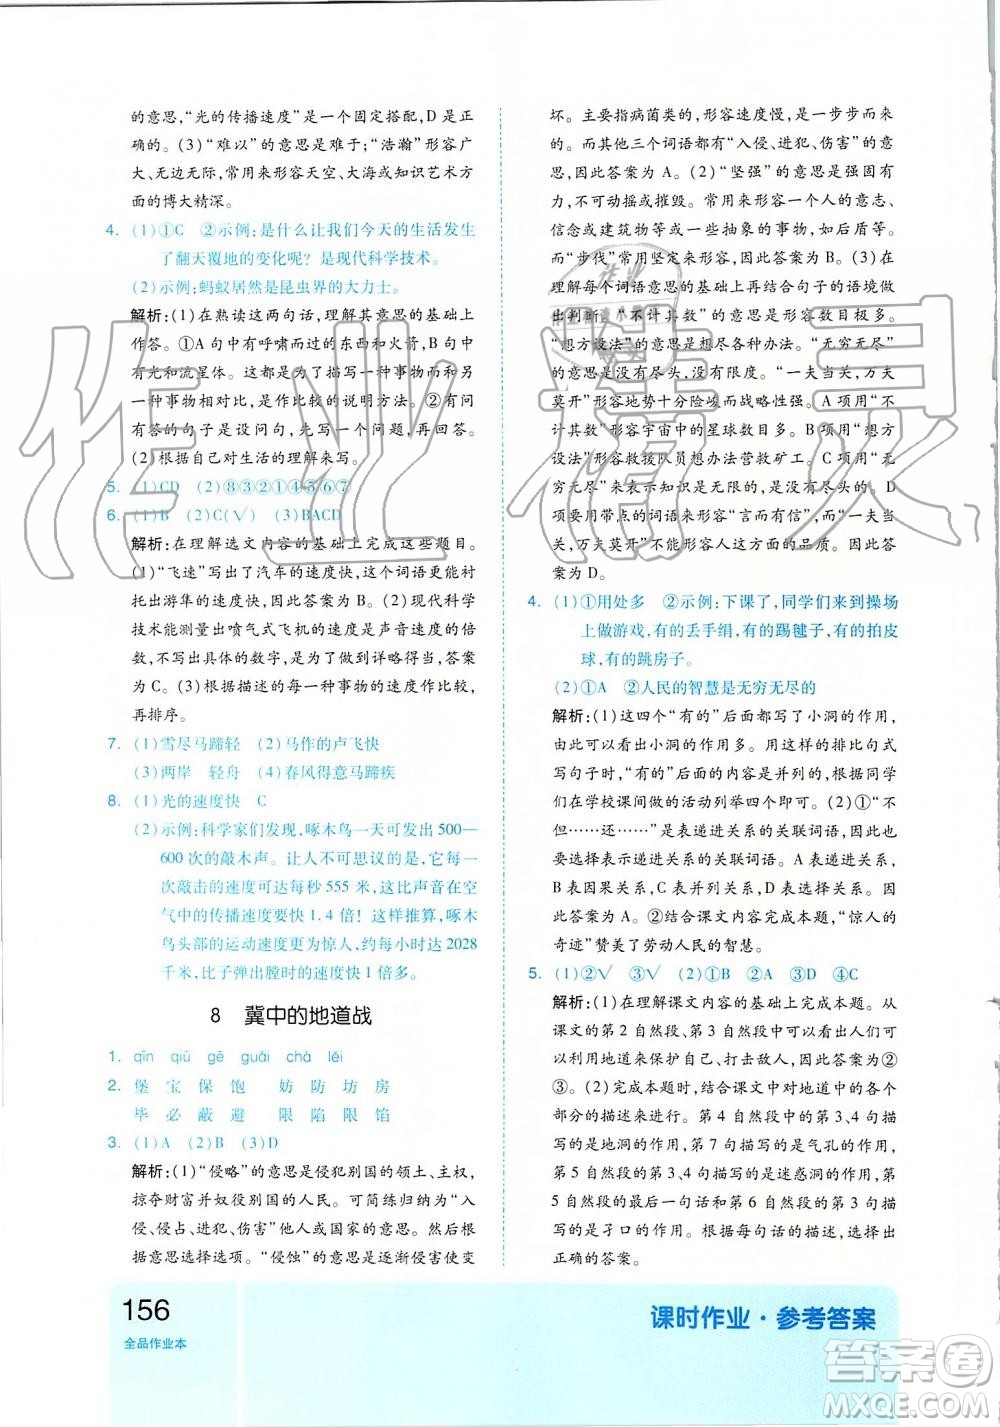 的意思,“光的传播速度”是一个固定搭配,D是正
确的。(3)“难以”的意思是难于;“浩瀚”形容广
大、无边无际,常用来形容天空、大海或知识艺术方
面的博大精深。
4. (1)①C ②示例:是什么让我们今天的生活发生
了翻天覆地的变化呢?是现代科学技术。
(2)示例:蚂蚁居然是昆虫界的大力士。
解析:(1)在熟读这两句话,理解其意思的基础上
作答。①A句中有呼啸而过的东西和火箭,B句中
有光和流星体。像这样为了描写一种事物而和另
一种事物相对比,是作比较的说明方法。②有问
有答的句子是设问句,先写一个问题,再写回答。
(2)根据自己对生活的理解来写。
5. (1)CD (2)⑧③②①④⑤⑥⑦
6. (1)B (2)C(√) (3)BACD
解析:在理解选文内容的基础上完成这些题目。
(1)“飞速”写出了汽车的速度快,这个词语更能衬
托出游隼的速度快,因此答案为B。(2)现代科学
技术能测量出喷气式飞机的速度是声音速度的倍
数,不写出具体的数字,是为了让语言更简洁,答案
为C。(3)根据描述的每一种事物的速度作比较,
再排序。
7. (1)雪尽马蹄轻 (2)马作的卢飞快
(3)两岸 轻舟 (4)春风得意马蹄疾
8. (1)光的速度快 C
(2)示例:科学家们发现,啄木鸟一天可发出500—
600次的敲木声。让人不可思议的是,它每一
次敲击的速度可达每秒555米,比声音在空
气中的传播速度要快1.4倍!这样推算,啄木
鸟头部的运动速度更为惊人,约每小时达2028
千米,比子弹出膛时的速度快1倍多。
8 冀中的地道战
1. qīn qiū gē guǎi chà lěi
2. 堡 宝 保 饱 妨 防 坊 房
毕 必 蔽 避 限 陷 限 馅
3. (1)A (2)B (3)D
解析:(1)“侵略”的意思是侵犯别国的领土、主权,
掠夺财富并奴役别国的人民。可简练归纳为“入
侵、侵占、进犯、伤害”他人或国家的意思。然后根
据意思选择选项。“侵蚀”的意思是逐渐侵害使变
坏。主要指病菌类的,形容速度慢,是一步步而来
的。而其他三个词语都有“入侵、进犯、伤害”的意
思,因此答案为A。(2)“坚强”的意思是强固有力,
不可动摇或摧毁。常用来形容人的性格、人的意志、
信念或建筑物等一些抽象的事物,因此答案为B。
而“步伐”常用坚定来形容,因此答案为B。(3)在
理解每个词语意思的基础上再结合句子的语境做
出判断。“不计其数”的意思是形容数目极多。
“想方设法”的意思是想尽各种办法。“无穷无尽”
的意思是没有尽头,没有限度。“一夫当关,万夫
莫开”形容地势十分险峻而战略性强。A项用“不
计其数”形容宇宙中的星球数目多。B项用“想方
设法”形容救援队员想办法营救矿工。C项用“无
穷无尽”来表示知识是无限的,是学不尽的。D
项要用带点的词语来形容“言而有信”,而“一夫当
关,万夫莫开”不能形容人这方面的品质。因此答
案为D。
4. (1)①用处多 ②示例:下课了,同学们来到操场
上做游戏,有的丢手绢,有的踢毽子,有的拍皮
球,有的跳房子。
(2)①A ②人民的智慧是无穷无尽的
解析:(1)这四个“有的”后面都写了小洞的作用,
因此可以看出小洞的作用多。②用这样的排比句式
写句子时,“有的”后面应该是并列的,根据同学们
在学校课间做的活动列举四个即可。(2)①“不
但……还……”是表递进关系的关联词语,因此应
选择表示递进关系的关联词语。A表递进关系,
B表因果关系,C表并列关系,D表选择关系,因此
答案为A。②结合课文内容完成本题,“惊人的
奇迹”赞美了劳动人民的智慧。
5. (1)②√ ③√ (2)①B ②A ③D ④C
解析:(1)在理解课文内容的基础上完成本题。从
课文的第2自然段、第3自然段中可以看出人们可
以利用地道来保护自己、打击敌人,因此答案为②
③。(2)完成本题时,结合课文中对地道中的各个
部分的描述来进行。第4自然段中的第3、4句描
写的是地洞的作用,第7句描写的是气孔的作用。
第5自然段的第3、4句描写的是迷惑洞的作用,第
5自然段的最后一句话和第6自然段的第1句描
写的是孑口的作用。根据每句话的描述,选择出
正确的答案。
156
全品作业本
课时作业·参考答案
作业精灵
答案圈
MXQE.COM